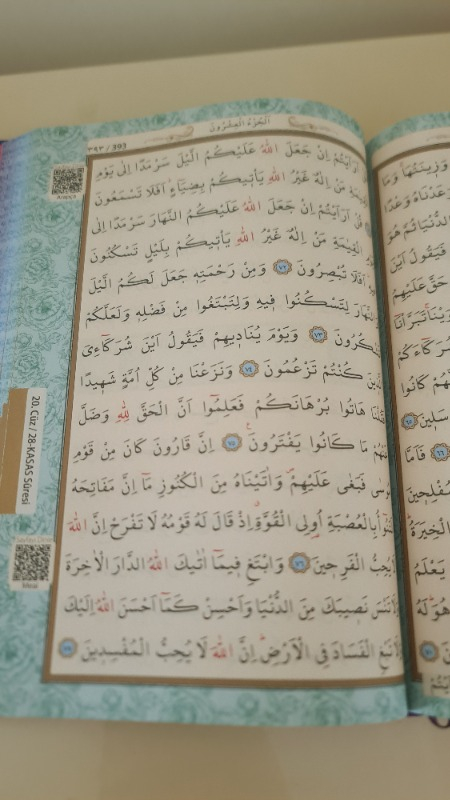 اَلْجُزْءُ الْعِشْرُونَ
٣٩٣ / 393
اَرَاَيْتُمْ اِنْ جَعَلَ اللّٰهُ عَلَيْكُمُ الَّيْلَ سَرْمَدًا اِلٰى يَوْمِ
مَنْ اِلٰهٌ غَيْرُ اللّٰهِ يَأْتِيكُمْ بِضِيَٓاءٍ اَفَلَا تَسْمَعُونَ
قُلْ اَرَاَيْتُمْ اِنْ جَعَلَ اللّٰهُ عَلَيْكُمُ النَّهَارَ سَرْمَدًا اِلٰى
الْقِيٰمَةِ مَنْ اِلٰهٌ غَيْرُ اللّٰهِ يَأْتِيكُمْ بِلَيْلٍ تَسْكُنُونَ
اَفَلَا تُبْصِرُونَ ٧٢ وَمِنْ رَحْمَتِهٖ جَعَلَ لَكُمُ الَّيْلَ
وَالنَّهَارَ لِتَسْكُنُوا فِيهِ وَلِتَبْتَغُوا مِنْ فَضْلِهٖ وَلَعَلَّكُمْ
تَشْكُرُونَ ٧٣ وَيَوْمَ يُنَادِيهِمْ فَيَقُولُ اَيْنَ شُرَكَٓاءِىَ
الَّذِينَ كُنْتُمْ تَزْعُمُونَ ٧٤ وَنَزَعْنَا مِنْ كُلِّ اُمَّةٍ شَهِيدًا
فَقُلْنَا هَاتُوا بُرْهَانَكُمْ فَعَلِمُٓوا اَنَّ الْحَقَّ لِلّٰهِ وَضَلَّ
عَنْهُمْ مَا كَانُوا يَفْتَرُونَ ٧٥ اِنَّ قَارُونَ كَانَ مِنْ قَوْمِ
مُوسٰى فَبَغٰى عَلَيْهِمْ وَاٰتَيْنَاهُ مِنَ الْكُنُوزِ مَٓا اِنَّ مَفَاتِحَهُ
لَتَنُٓوأُ بِالْعُصْبَةِ اُولِى الْقُوَّةِ اِذْ قَالَ لَهُ قَوْمُهُ لَا تَفْرَحْ اِنَّ اللّٰهَ
لَا يُحِبُّ الْفَرِحِينَ ٧٦ وَابْتَغِ فِيمَٓا اٰتٰيكَ اللّٰهُ الدَّارَ الْاٰخِرَةَ
وَلَا تَنْسَ نَصِيبَكَ مِنَ الدُّنْيَا وَاَحْسِنْ كَمَٓا اَحْسَنَ اللّٰهُ اِلَيْكَ
وَلَا تَبْغِ الْفَسَادَ فِى الْاَرْضِ اِنَّ اللّٰهَ لَا يُحِبُّ الْمُفْسِدِينَ ٧٧
20. Cüz / 28-KASAS Sûresi
Arapça
Meal
وَزِينَتُهَا وَمَا
وَعَدْنَاهُ وَعْدًا
الدُّنْيَا ثُمَّ هُوَ
فَيَقُولُ اَيْنَ
حَقَّ عَلَيْهِمُ
شُرَكَٓاءَكُمْ
اَنَّهُمْ كَانُوا
فَاَمَّا
الْمُفْلِحِينَ
الْخِيَرَةُ
يَعْلَمُ
هُوَ لَهُ